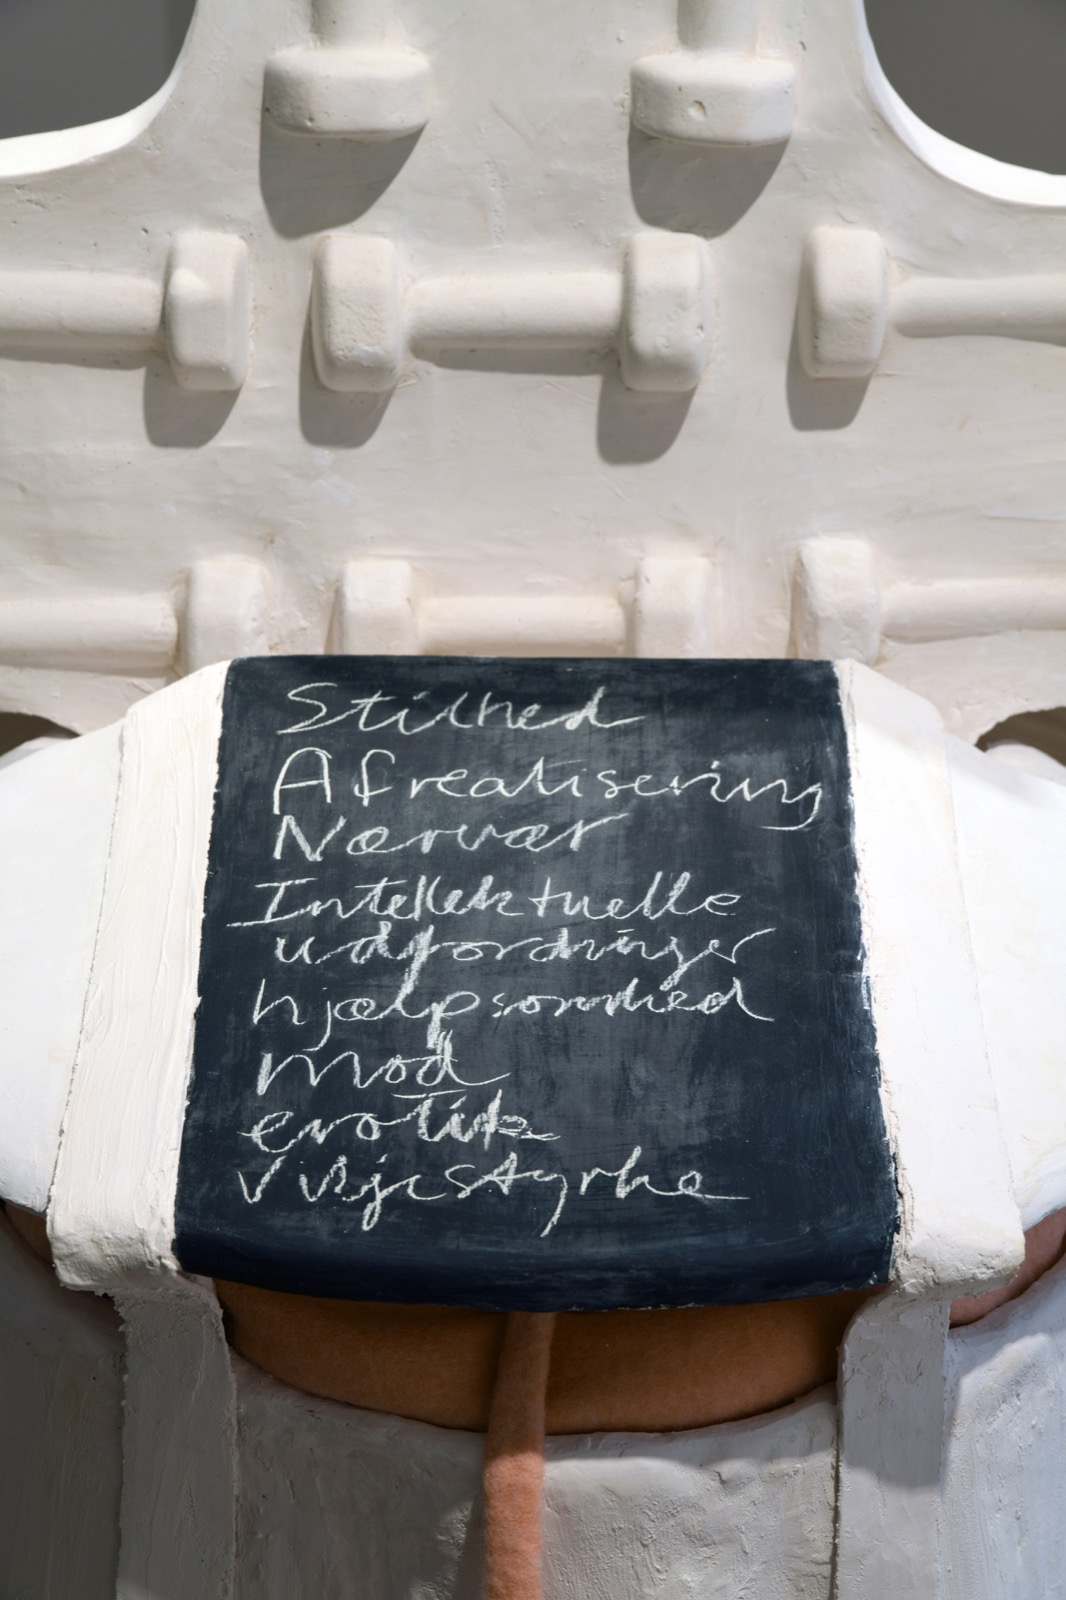 Stilhed
Afrealisering
Nærvær
Intellektuelle
udfordringer
hjælpsomhed
mod
erotik
viljestyrke